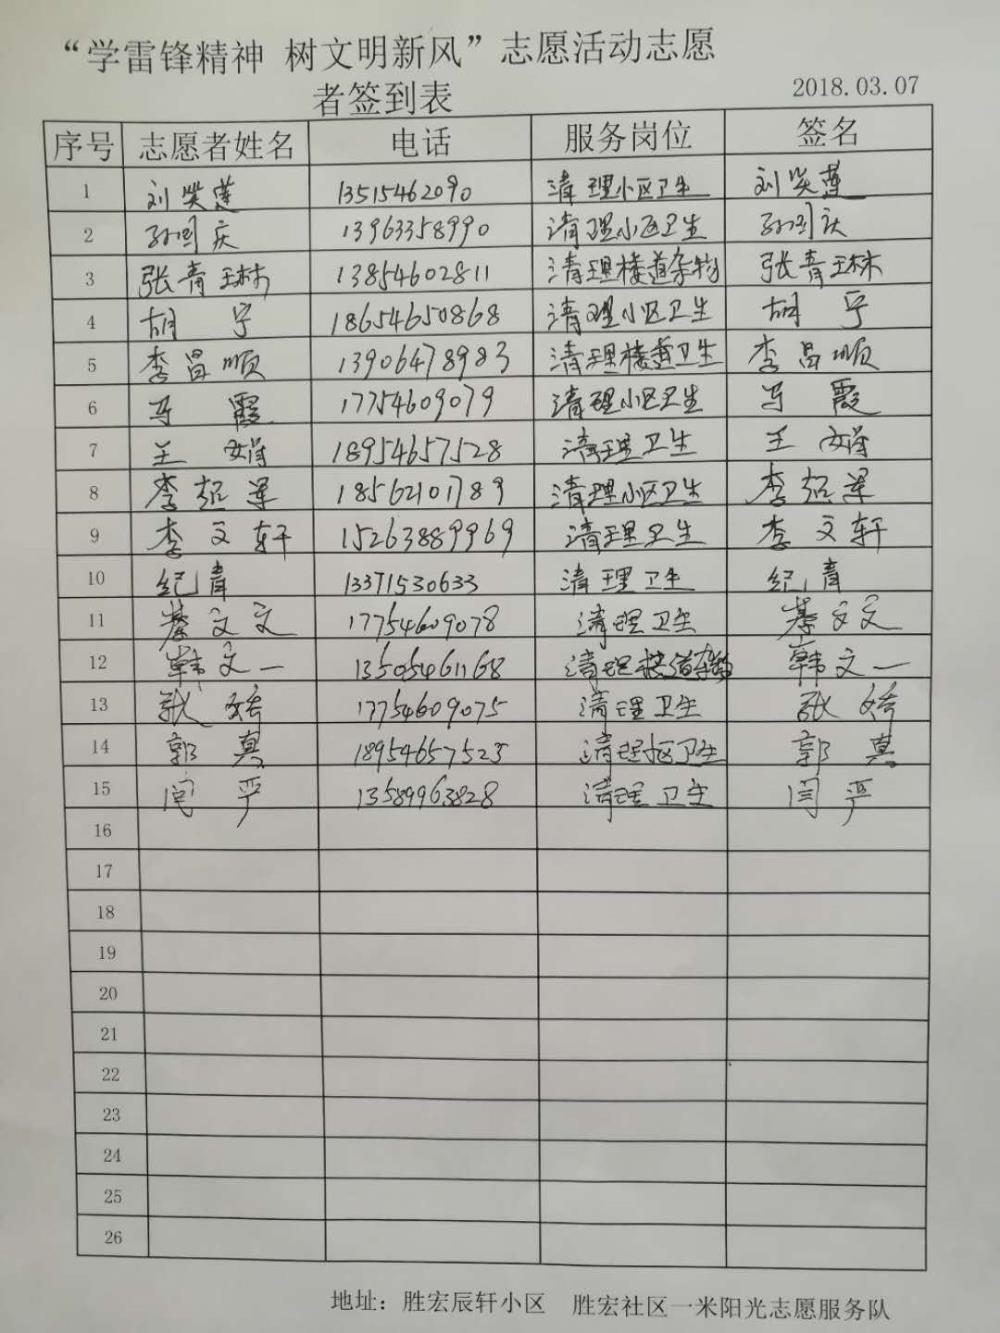 “学雷锋精神 树文明新风”志愿活动志愿
者签到表
2018.03.07
序号 志愿者姓名 电话 服务岗位 签名
1 刘笑莲 13515462090 清理小区卫生 刘笑莲
2 孙国庆 13963358990 清理小区卫生 孙国庆
3 张青琳 13854602811 清理楼道杂物 张青琳
4 胡宁 18654650868 清理小区卫生 胡宁
5 李昌顺 13906478983 清理楼道卫生 李昌顺
6 马霞 17754609079 清理小区卫生 马霞
7 王娟 18954657528 清理卫生 王娟
8 李超军 18562101789 清理小区卫生 李超军
9 李文轩 15263889969 清理卫生 李文轩
10 纪青 13371530633 清理卫生 纪青
11 綦文文 17754609078 清理卫生 綦文文
12 韩文一 13505461168 清理楼道杂物 韩文一
13 张婷 17754609075 清理卫生 张婷
14 郭真 18954657523 清理小区卫生 郭真
15 闫严 13589963828 清理卫生 闫严
16
17
18
19
20
21
22
23
24
25
26
地址：胜宏辰轩小区 胜宏社区一米阳光志愿服务队